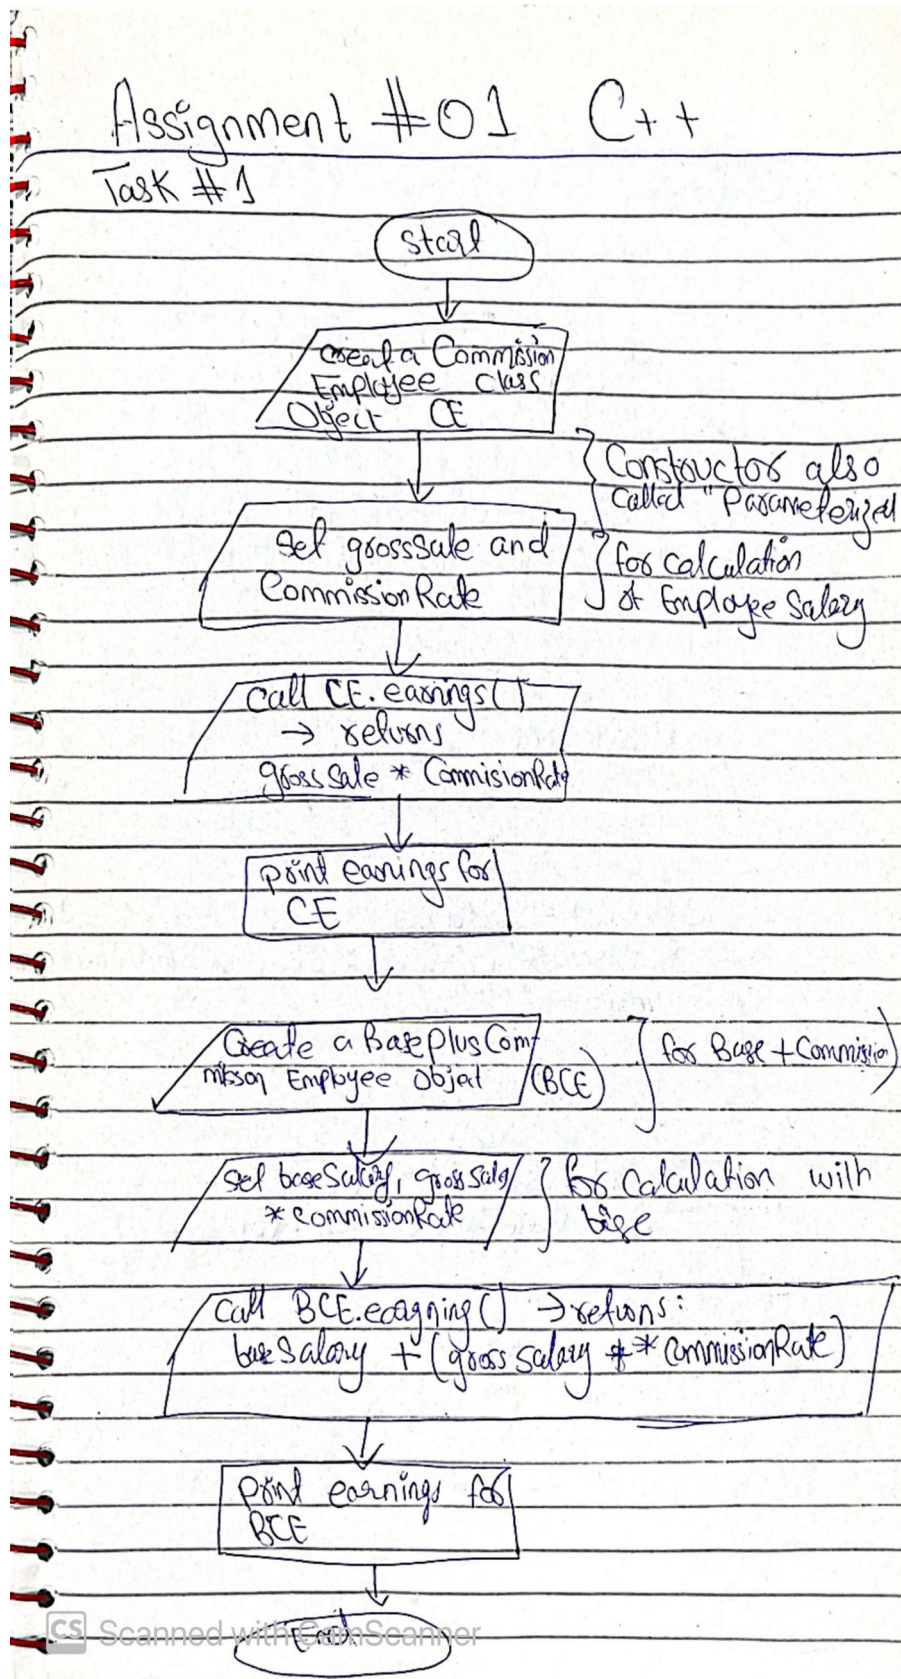 Assignment #01 C++
Task #1
Start
Creat a Commission
Employee class
Object CE
Constructor also
Called "Parameterized
Set grossSale and
CommissionRate
for calculation
of Employee Salary
Call CE.earnings()
→ returns
gross sale * CommisionRate
print earnings for
CE
Create a BasePlusCom-
mission Employee Object (BCE)
for Base + Commision)
set baseSalary, gross Sale
* CommissionRate
for Calculation with
base
Call BCE.eagning() → returns:
base Salary + (gross Salary * * CommissionRate)
Print earnings for
BCE
End
CS Scanned with CamScanner